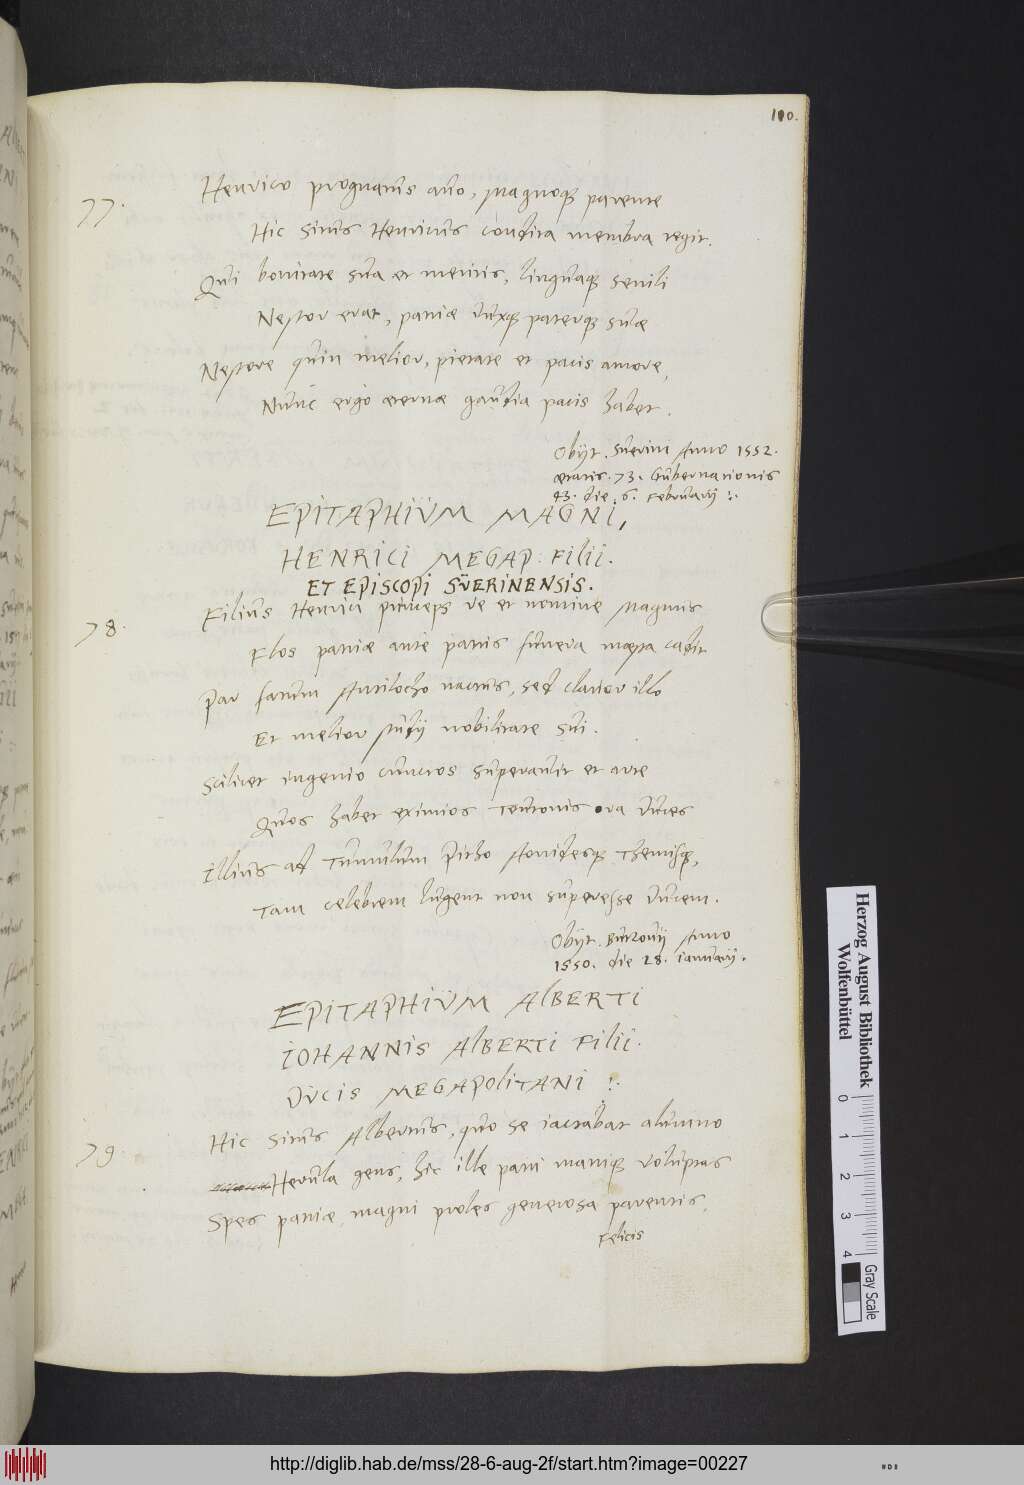 110.
77.
Henrico prognatus avo, magnoq parente
Hic situs Henricus condita membra tegit.
Qui bonitate sua et meritis, linguaq senili
Nestor erat, patriæ duxq paterq suæ
Nestore quin melior, pietate et pacis amore,
Nunc ergo æternæ gaudia pacis habet.
Obijt. Suerini Anno 1552.
ætatis. 73. Gubernationis
43. die. 6. Februarij :.
EPITAPHIUM MAGNI,
HENRICI MEGAP: FILII.
ET EPISCOPI SUERINENSIS.
78.
Filius Henrici princeps re et nomine Magnus
Flos patriæ ante patris funera mæsta cadit
Par fatum Antilocho nactus, sed clarior illo
Et melior studij nobilitate sui.
Scilicet ingenio cunctos superavit et arte
Quos habet eximios Teutonis ora duces
Illius ad tumulum Pitho Aonidesq Themisq,
Tam celebrem lugent non superesse ducem.
Obijt. Butzovij Anno
1550. die 28. Ianuarij.
EPITAPHIUM ALBERTI
IOHANNIS ALBERTI FILII.
DUCIS MEGAPOLITANI :.
79.
Hic situs Albertus, quo se iactabat alumno
Herula gens, hic ille patri matriq voluptas
Spes patriæ, magni proles generosa parentis,
Felicis
Herzog August Bibliothek
Wolfenbüttel
0 1 2 3 4
Gray Scale
http://diglib.hab.de/mss/28-6-aug-2f/start.htm?image=00227